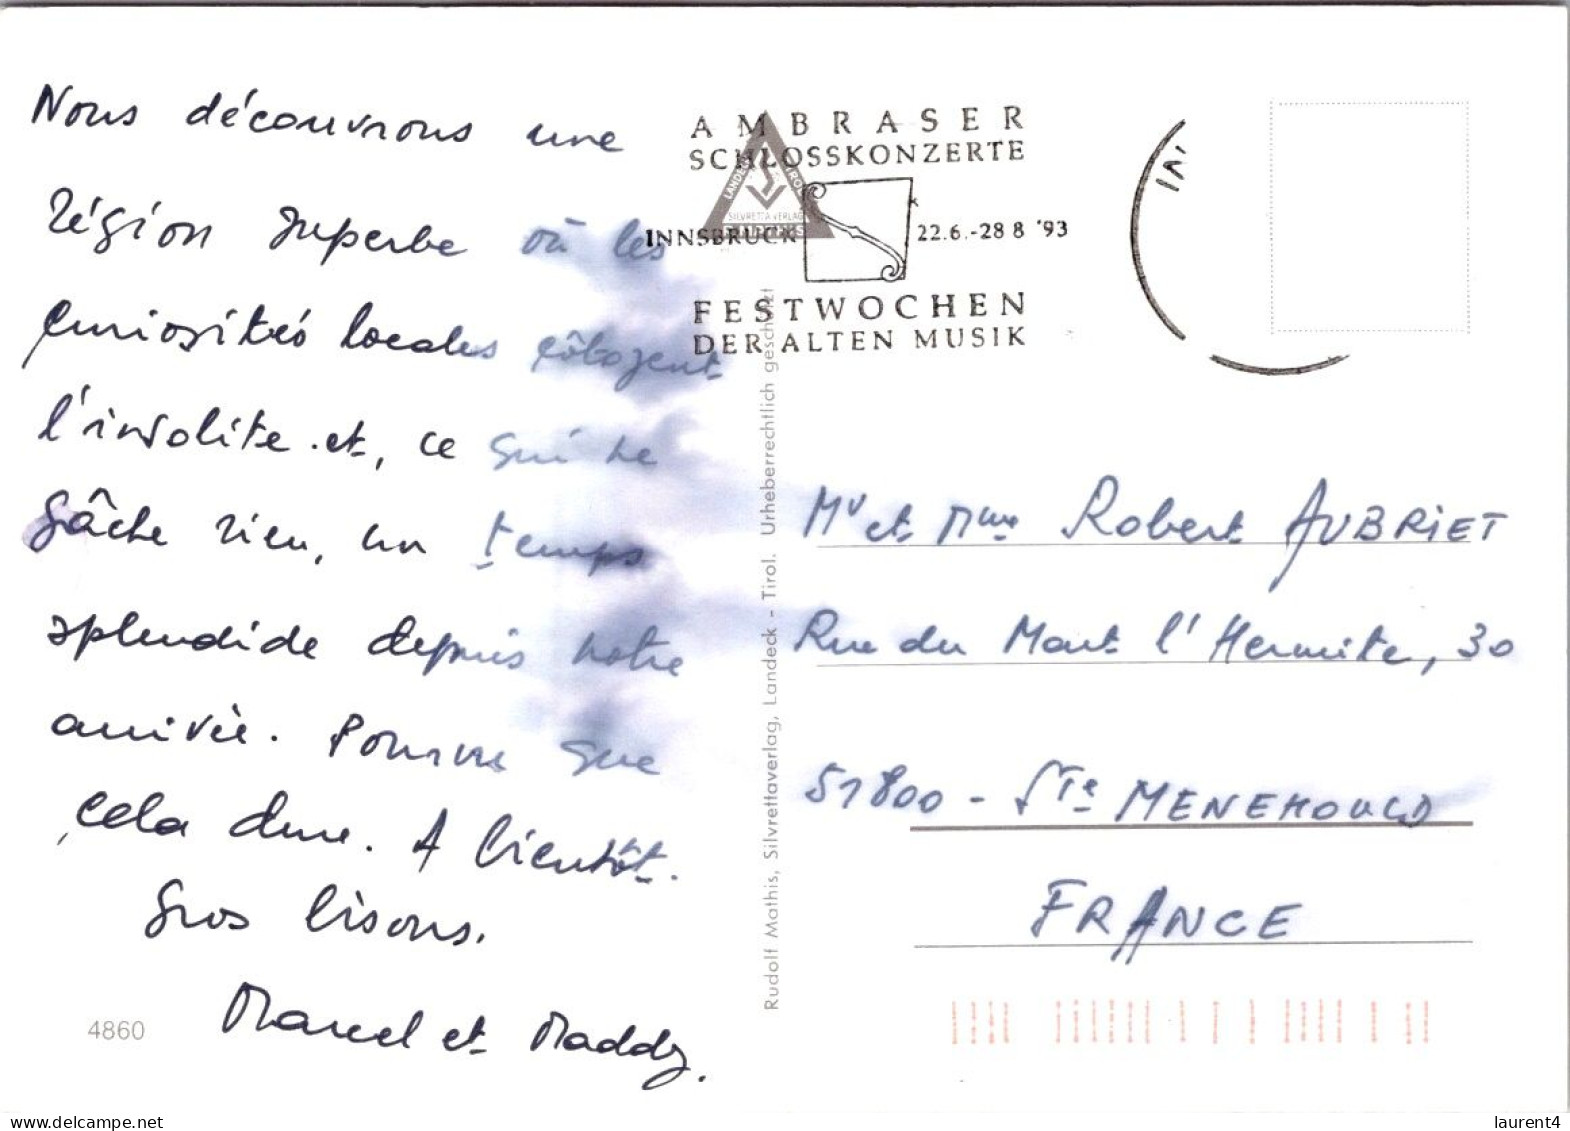 Nous découvrons une
région superbe où les
curiosités locales côtoyent
l'insolite et, ce qui ne
gâche rien, un temps
splendide depuis notre
arrivée. Pourvu que
cela dure. A bientôt.
Gros bisous.
Marcel et Maddy.
4860
AMBRASER
SCHLOSSKONZERTE
LANDECK TIROL
SILVRETTA VERLAG
INNSBRUCK 22.6.-28 8 '93
FESTWOCHEN
DER ALTEN MUSIK
Rudolf Mathis, Silvrettaverlag, Landeck - Tirol. Urheberrechtlich geschützt
Mr et Mme Robert AUBRIET
Rue du Mont l'Hermite, 30
51800 - Ste MENEHOULD
FRANCE
laurent4